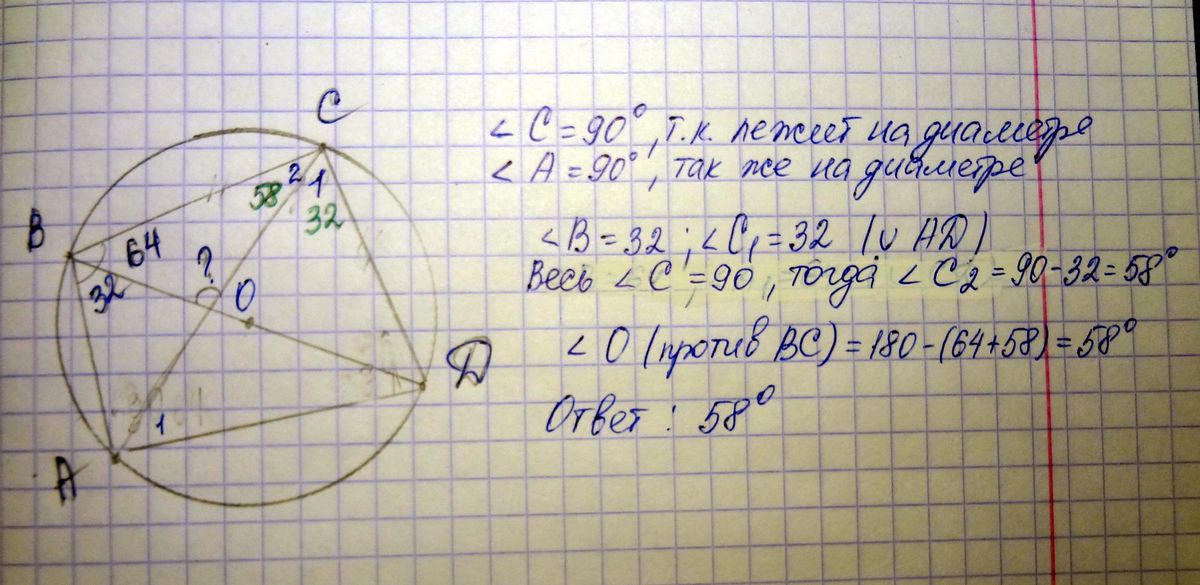 C
B
A
D
O
?
2 1
58
32
64
32
1
∠ C = 90°, т.к. лежит на диаметре
∠ A = 90°, так же на диаметре
∠B = 32 ; ∠C₁ = 32 (∪ AD)
Весь ∠ C = 90, тогда ∠ C₂ = 90-32 = 58°
∠ O (против BC) = 180-(64+58) = 58°
Ответ : 58°